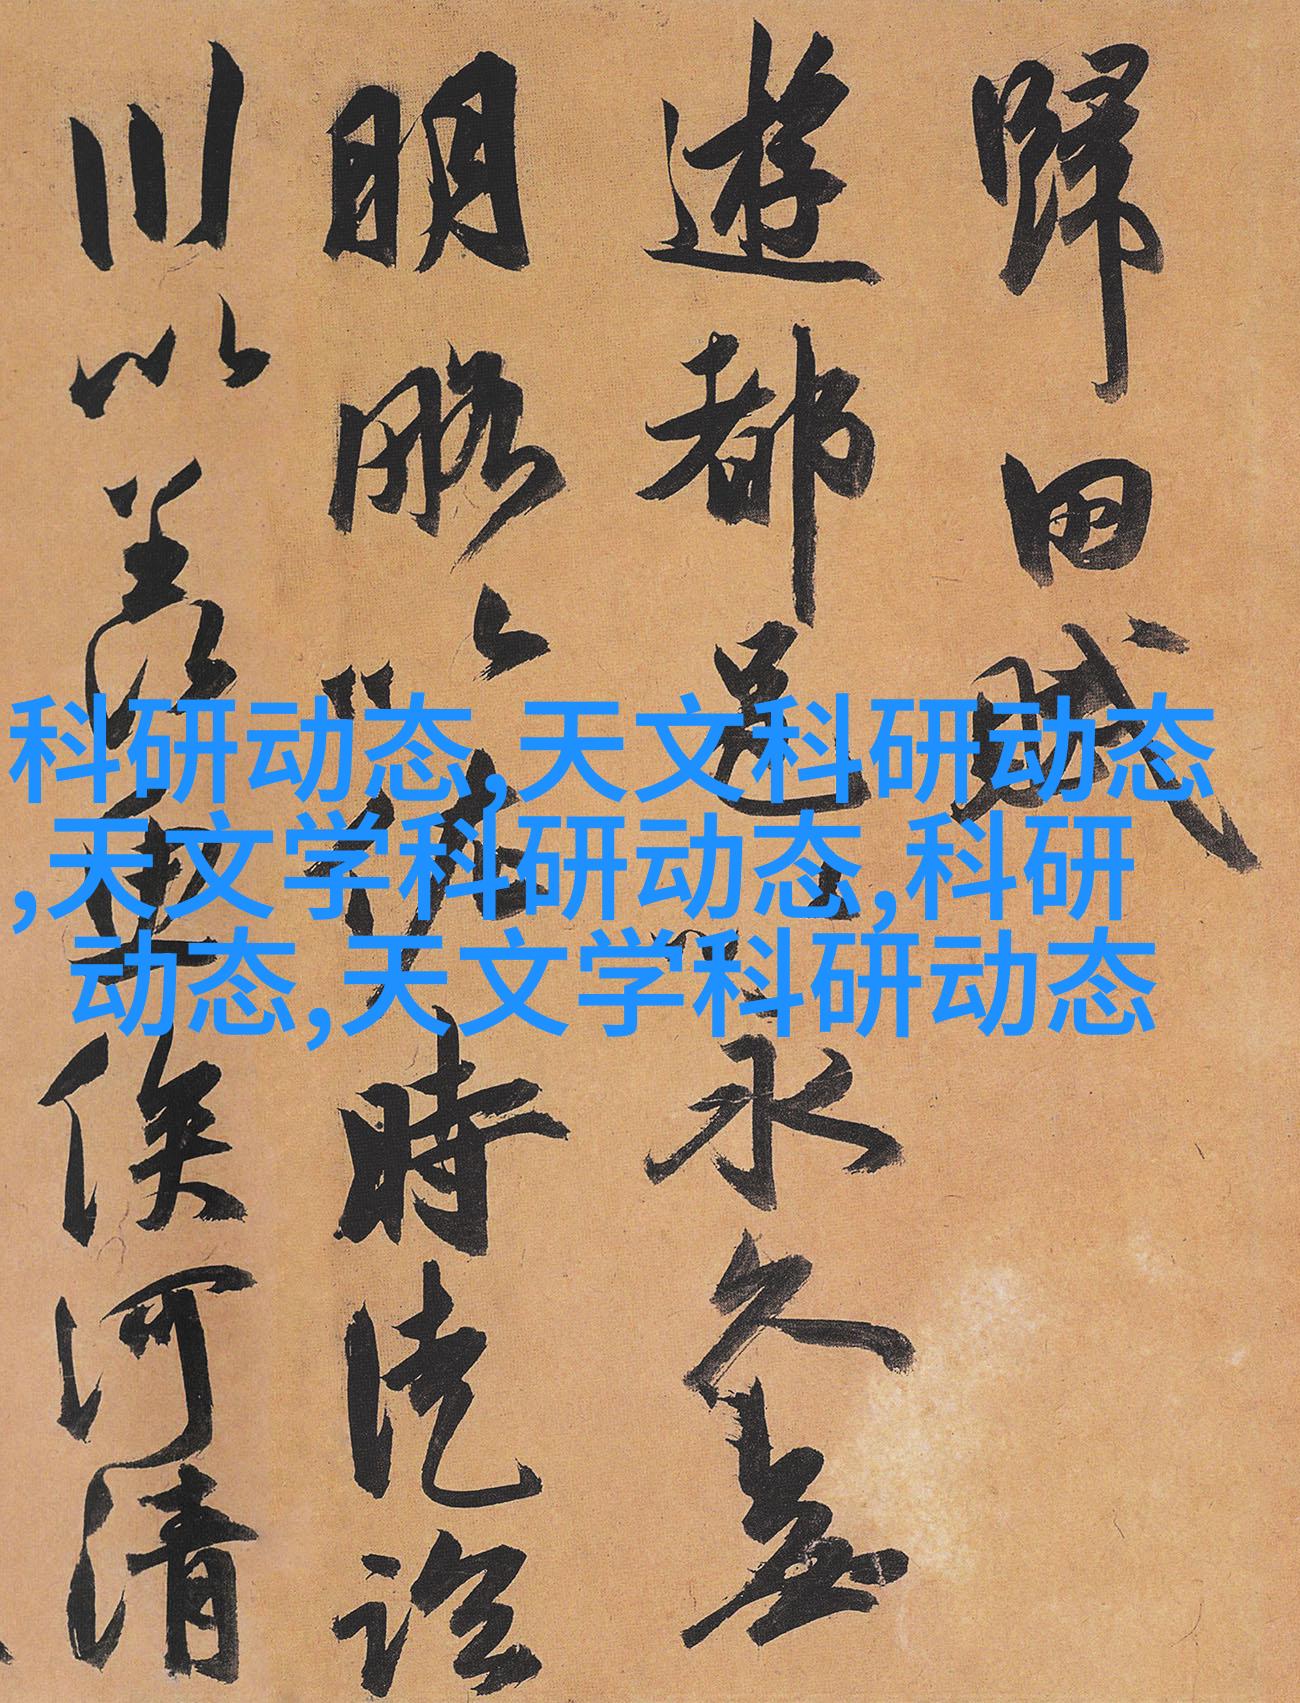 歸田賦
遊都邑以永久無
明略以佐時徒臨
川以羨魚俟河清
科研动态,天文科研动态
,天文学科研动态,科研
动态,天文学科研动态